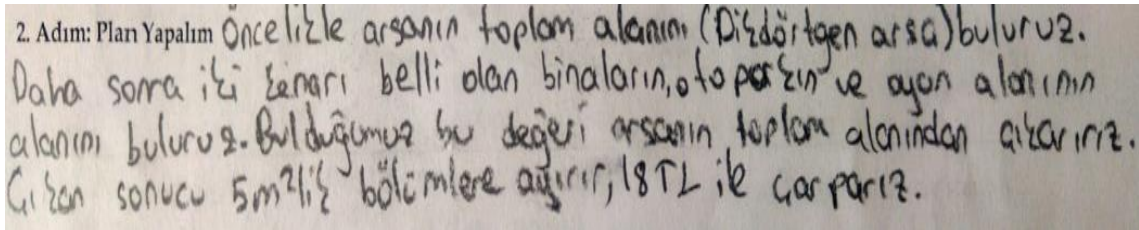 2. Adım: Plan Yapalım Öncelikle arsanın toplam alanını (Dikdörtgen arsa) buluruz.
Daha sonra iki kenarı belli olan binaların, otoparkın ve oyun alanının
alanını buluruz. Bulduğumuz bu değeri arsanın toplam alanından çıkarırız.
Çıkan sonucu 5m²lik bölümlere ayırır, 18 TL ile çarparız.